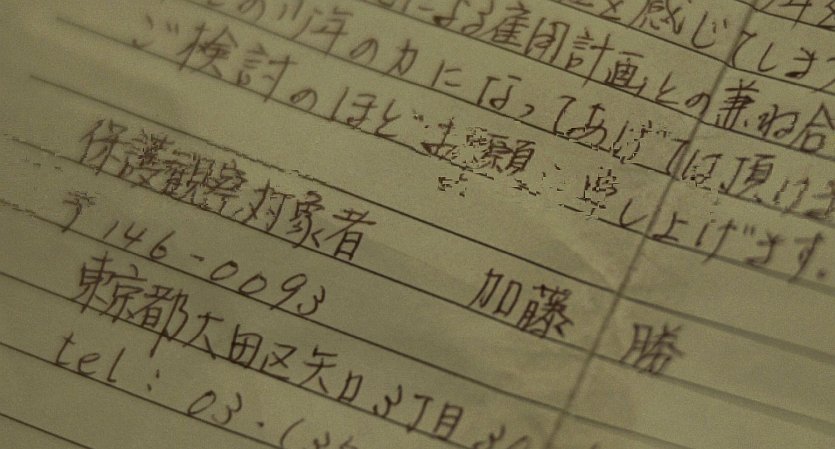 感じてしまう
による雇用計画との兼ね合
少年の力になってあげては頂けま
ご検討のほどお願い申し上げます。
保護観察対象者 加藤 勝
〒146-0093
東京都大田区矢口3丁目30
tel: 03-(3